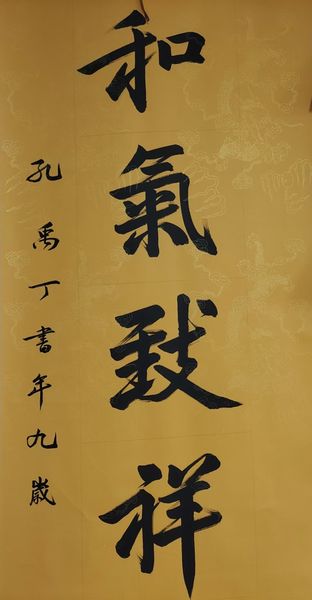 和氣致祥
孔禹丁書年九歲